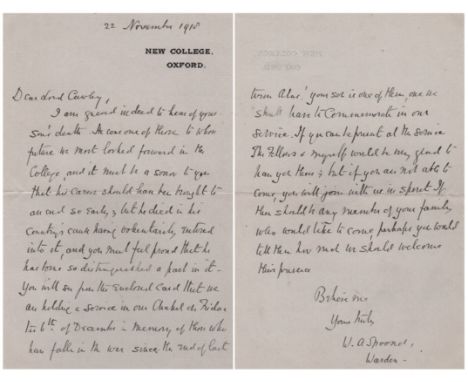 22 November 1918
NEW COLLEGE,
OXFORD.
Dear Lord Cawley,
I am grieved indeed to hear of your
son's death. He was one of those to whose
future we most looked forward in the
College, and it must be a sorrow to you
that his career should have been brought to
an end so early; but he died in his
Country's cause having voluntarily entered
into it, and you must feel proud that he
has borne so distinguished a part in it.
You will see from the Enclosed Card that we
are holding a service in our Chapel on Friday
the 6th of December in Memory of those who
have fallen in the war since the 2nd of last
term Alas! your son is one of them, one we
shall have to Commemorate in our
Service. If you can be present at the Service
The Fellows & myself would be very glad to
have you there; but if you are not able to
come, you will join with us in spirit. If
there should be any member of your family
who would like to come, perhaps you would
tell them how much we should welcome
their presence
Believe me
Yours truly
W. A Spooner,
Warden -